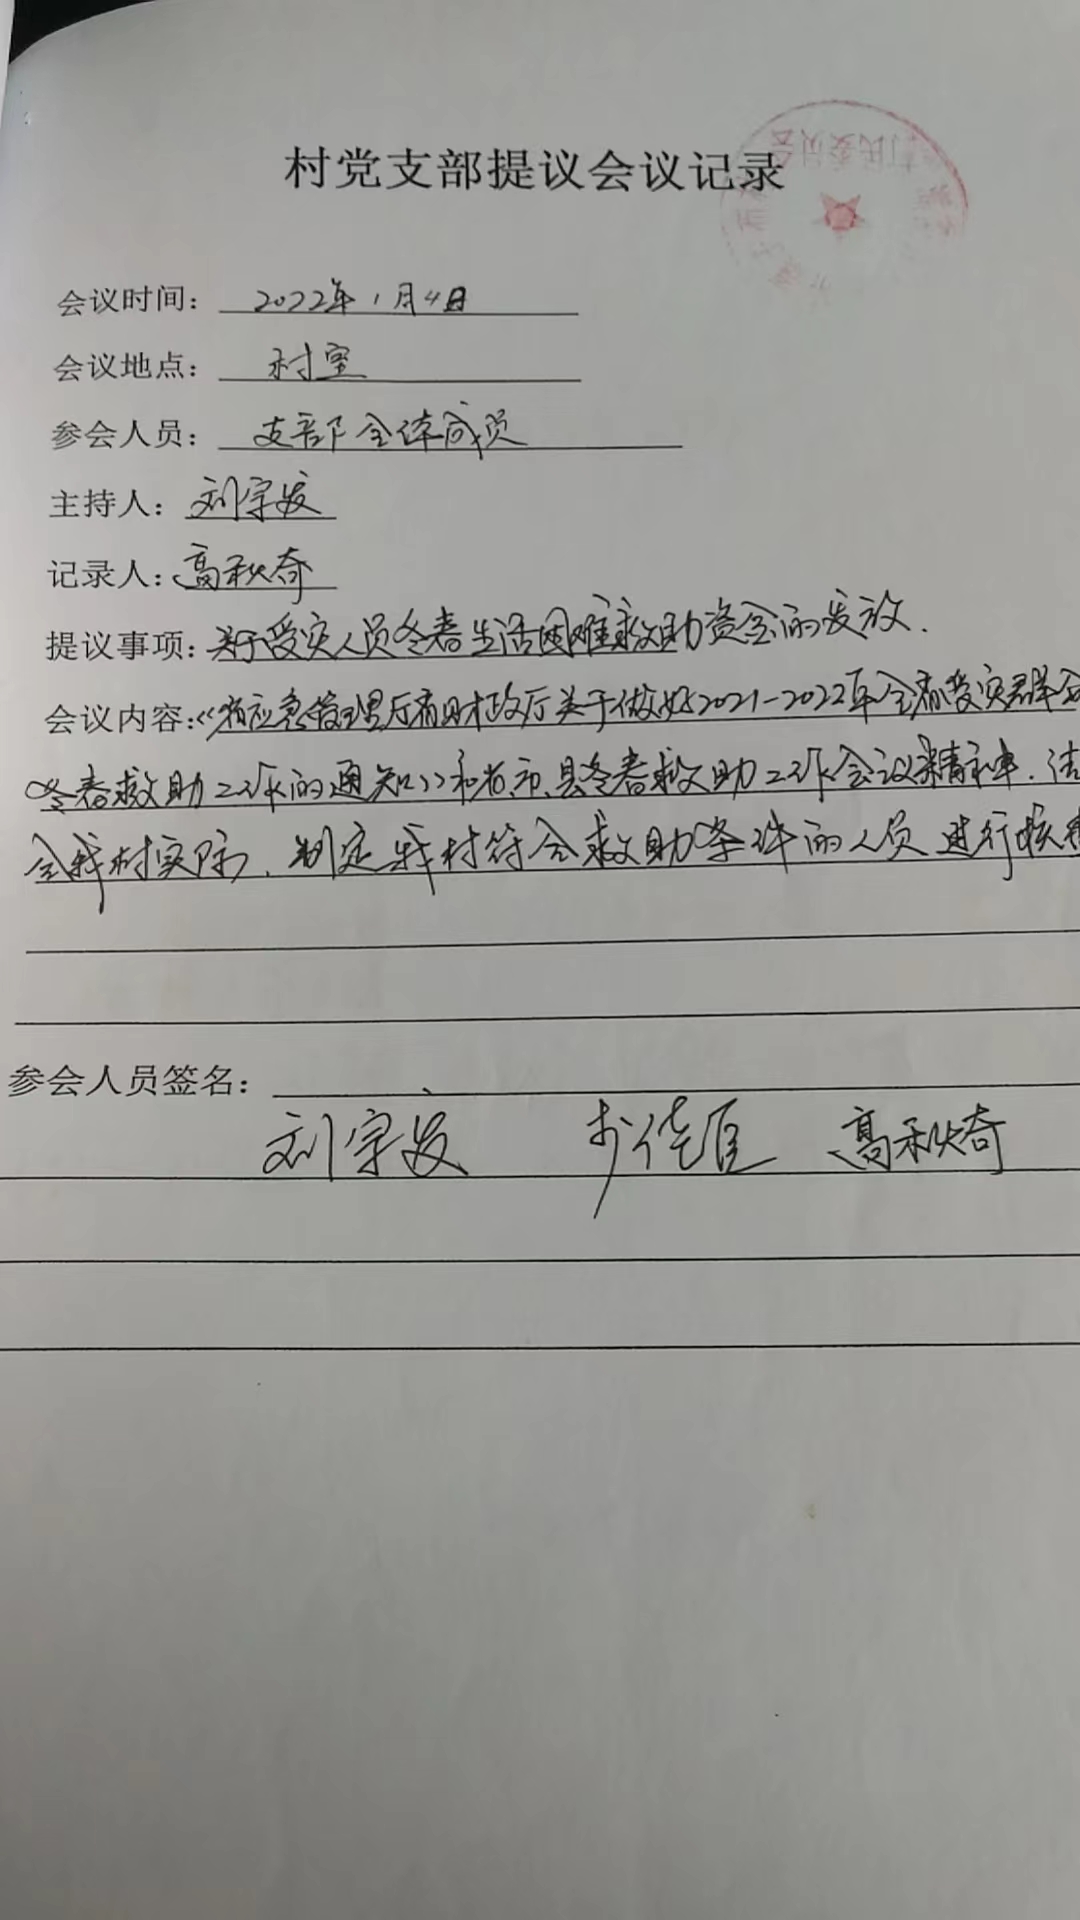 村党支部提议会议记录
会议时间：2022年1月4日
会议地点：村室
参会人员：支部全体成员
主持人：刘宗发
记录人：高秋奇
提议事项：关于受灾人员冬春生活困难救助资金的发放.
会议内容：《省应急管理厅省财政厅关于做好2021-2022年全省受灾群众
冬春救助工作的通知》和省、市、县冬春救助工作会议精神.结
合我村实际,制定我村符合救助条件的人员进行核
参会人员签名：
刘宗发 高秋奇